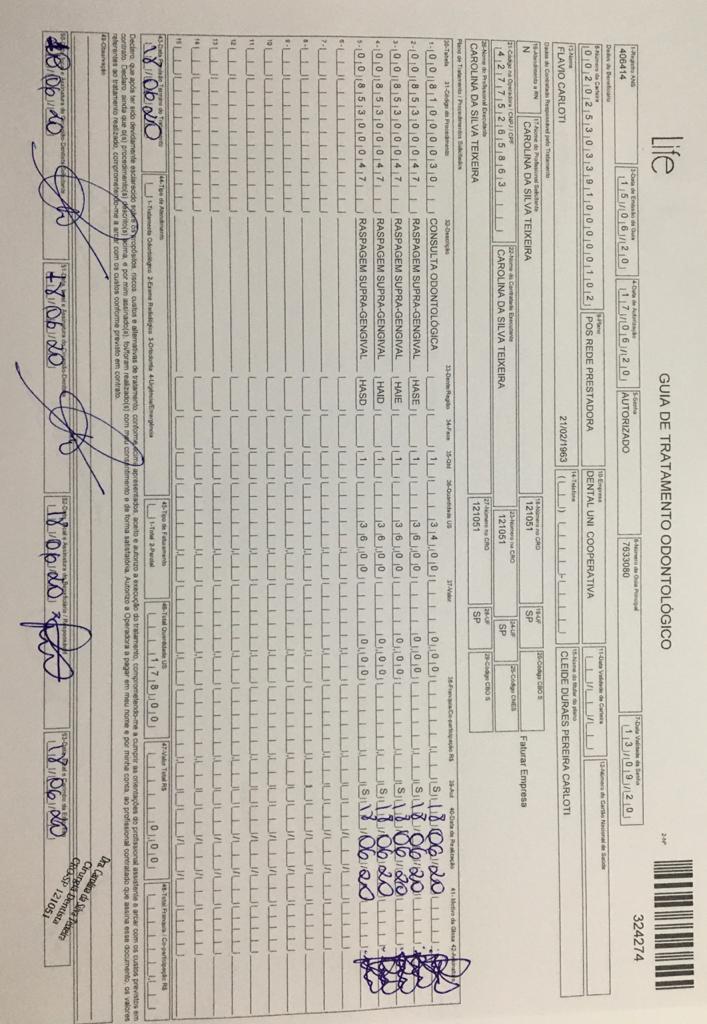 Life
GUIA DE TRATAMENTO ODONTOLÓGICO
2-NP
324274
1-Registro ANS
406414
3-Data de Emissão da Guia
15/06/20
4-Data de Autorização
17/06/20
5-Senha
AUTORIZADO
6-Número da Guia Principal
7633080
7-Data Validade da Senha
13/09/20
Dados do Beneficiário
8-Número da Carteira
00202530339100000102
9-Plano
POS REDE PRESTADORA
10-Empresa
DENTAL UNI COOPERATIVA
11-Data Validade da Carteira
12-Número do Cartão Nacional de Saúde
13-Nome
FLAVIO CARLOTI
21/02/1963
14-Telefone
15-Nome do titular do plano
CLEIDE DURAES PEREIRA CARLOTI
Dados do Contratado Responsável pelo Tratamento
16-Atendimento a RN
N
17-Nome do Profissional Solicitante
CAROLINA DA SILVA TEIXEIRA
18-Número no CRO
121051
19-UF
SP
20-Código CBO S
Faturar Empresa
21-Código na Operadora / CNPJ / CPF
42775265863
22-Nome do Contratado Executante
CAROLINA DA SILVA TEIXEIRA
23-Número no CRO
121051
24-UF
SP
25-Código CNES
26-Nome do Profissional Executante
CAROLINA DA SILVA TEIXEIRA
27-Número no CRO
121051
28-UF
SP
29-Código CBO S
Plano de Tratamento / Procedimentos Solicitados
30-Tabela 31-Código do Procedimento 32-Descrição 33-Dente/Região 34-Face 35-Qtd 36-Quantidade US 37-Valor 38-Franquia/Co-participação R$ 39-Aut 40-Data de Realização 41-Motivo da Glosa
1- 00 81000030 CONSULTA ODONTOLÓGICA 1 34,00 0,00 S 18/06/20
2- 00 85300047 RASPAGEM SUPRA-GENGIVAL HASE 1 36,00 0,00 S 18/06/20
3- 00 85300047 RASPAGEM SUPRA-GENGIVAL HAIE 1 36,00 0,00 S 18/06/20
4- 00 85300047 RASPAGEM SUPRA-GENGIVAL HAID 1 36,00 0,00 S 18/06/20
5- 00 85300047 RASPAGEM SUPRA-GENGIVAL HASD 1 36,00 0,00 S 18/06/20
6-
7-
8-
9-
10-
11-
12-
13-
14-
15-
18/06/20
44-Tipo de Atendimento
1-Tratamento Odontológico 2-Exame Radiológico 3-Ortodontia 4-Urgência/Emergência
45-Tipo de Faturamento
1-Total 2-Parcial
46-Total Quantidade US
178,00
47-Valor Total R$
0,00
48-Total Franquia / Co-participação R$
Declaro, que após ter sido devidamente esclarecido sobre os propósitos, riscos, custos e alternativas de tratamento, conforme acima apresentados, aceito e autorizo a execução do tratamento, comprometendo-me a cumprir as orientações do profissional assistente e arcar com os custos previstos em
contrato. Declaro, ainda que o(s) procedimento(s) descrito(s) acima, e por mim assinado(s), foi/foram realizado(s) com meu consentimento e de forma satisfatória. Autorizo a Operadora a pagar em meu nome e por minha conta, ao profissional contratado que assina esse documento, os valores
referentes ao tratamento realizado, comprometendo-me a arcar com os custos conforme previsto em contrato.
49-Observação
18/06/20
18/06/20
18/06/20
18/06/20
Dra. Carolina da Silva Teixeira
Cirurgiã Dentista
CROSP 121051